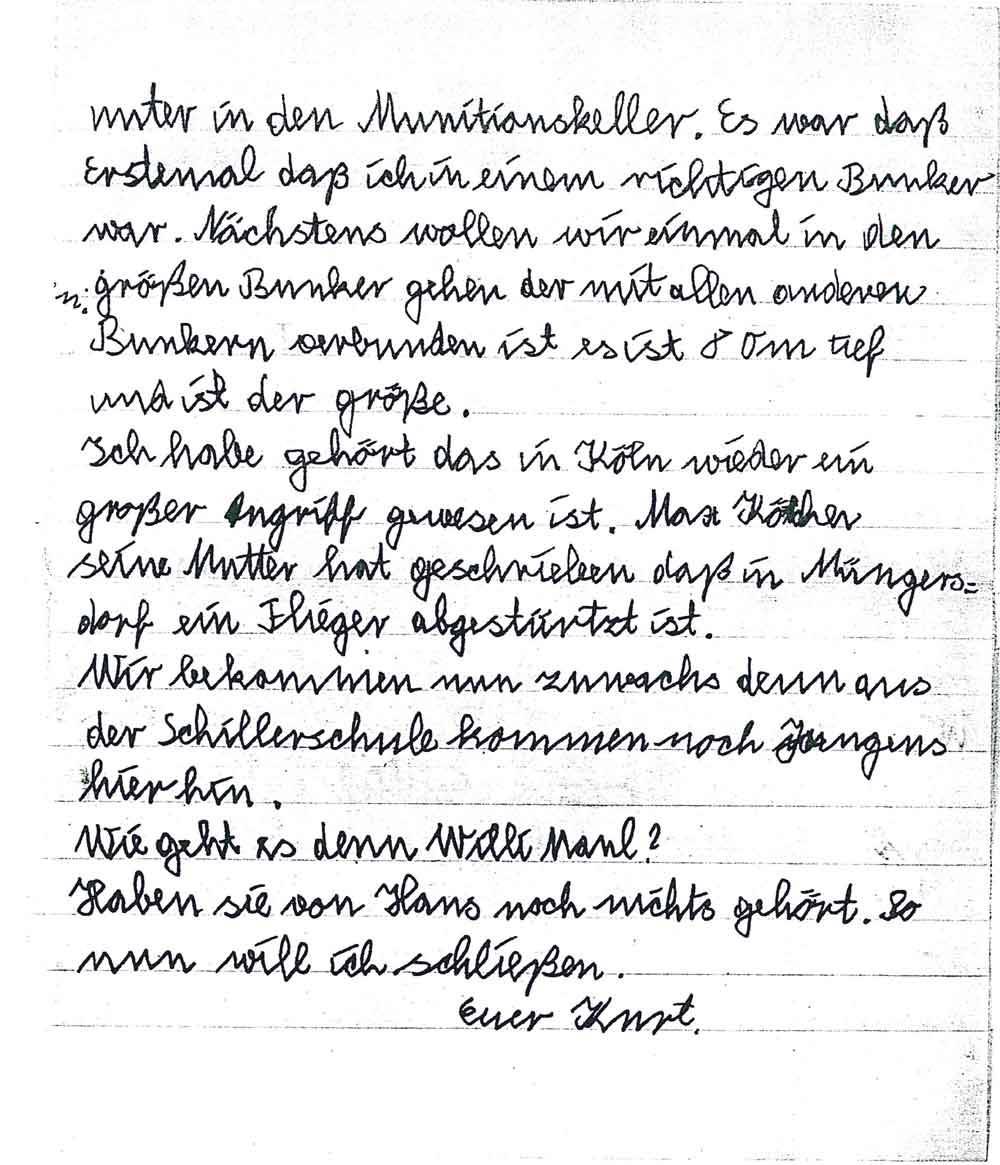 unter in den Munitionskeller. Es war daß
Erstemal daß ich in einem richtigen Bunker
war. Nächstens wollen wir einmal in den
n. größen Bunker gehen der mit allen anderen
Bunkern verbunden ist es ist 80m tief
und ist der größe.
Ich habe gehört das in Köln wieder ein
großer Angriff gewesen ist. Max Köther
seine Mutter hat geschrieben daß in Müngers=
dorf ein Flieger abgestürtzt ist.
Wir bekommen nun zuwachs denn aus
der Schillerschule kommen noch Jungens
hierhin.
Wie geht es denn Willi Maul?
Haben sie von Hans noch nichts gehört. So
nun will ich schließen.
Euer Kurt.